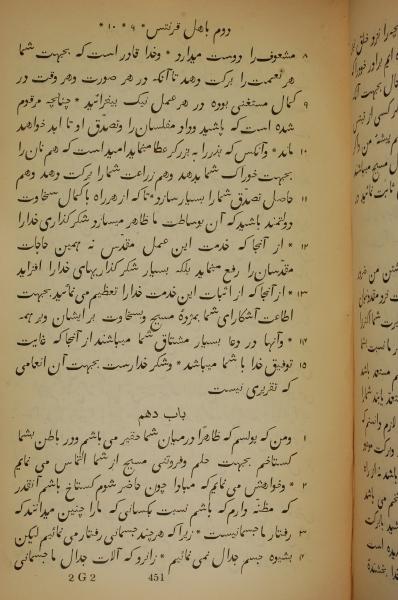 دوم باهل قرنتس * ۹ * ۱۰ *
۸ مشعوف را دوست میدارد * وخدا قادر است که بجهت شما
هر نعمت را برکت دهد تا آنکه در هر صورت وهر وقت در
۹ کمال مستغنی بوده در هر عمل نیک بیفزائید * چنانچه مرقوم
شده است که پاشید وداو مفلسان را وتصدّق او تا ابد خواهد
۱۰ ماند * وآنکس که بذر را به برزگر عطا مینماید امید است که هم نان را
بجهت خوراک شما بدهد وهم زراعت شما را برکت دهد وهم
۱۱ حاصل تصدّق شما را بسیار سازد * تا که از هر راه با کمال سخاوت
دولتمند باشید که آن بوساطت ما ظاهر میسازد شکر گذاری خدا را
۱۲ * از آنجا که خدمت این عمل مقدّس نه همین حاجات
مقدّسان را رفع مینماید بلکه بسیار شکر گذاریهای خدا را افزاید
۱۳ * از آنجا که از اثبات این خدمت خدا را تعظیم می نمائید بجهت
اطاعت آشکارای شما بمژدهٔ مسیح وسخاوت بر ایشان وبر همه
۱۴ * وآنها در دعا بسیار مشتاق شما میباشند از آنجا که غایت
۱۵ توفیق خدا با شما میباشد * وشکر خدا راست بجهت آن انعامی
که تقریری نیست
باب دهم
۱ ومن که پولسم که ظاهرًا در میان شما حقیر می باشم ودر باطن بشما
گستاخم بجهت حلم وفروتنی مسیح از شما التماس می نمایم
۲ * وخواهش می نمایم که مبادا چون حاضر شوم گستاخ باشم آنقدر
که مظنّه دارم که باشم نسبت بکسانی که ما را چنین میدانند که
۳ رفتار ما جسمانیست * زیرا که هر چند جسمانی رفتار می نمائیم لیکن
۴ بشیوه جسم جدال نمی نمائیم * زانرو که آلات جدال ما جسمانی
2 G 2 451